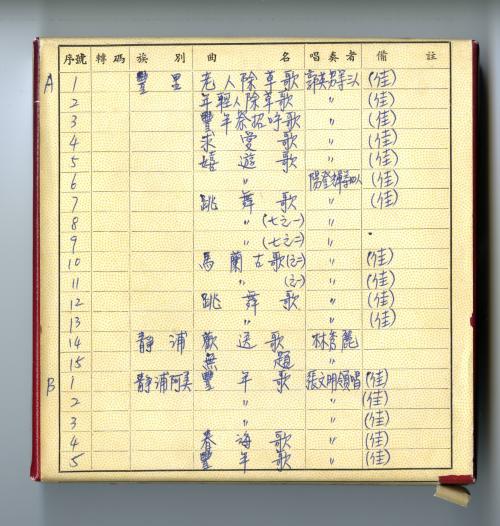 序號 轉碼 族別 曲名 唱奏者 備註
A 1 豐里 老人除草歌 (佳)
2 年輕人除草歌 〃 (佳)
3 豐年祭招呼歌 〃 (佳)
4 求愛歌 〃 (佳)
5 嬉遊歌 〃 (佳)
6 〃 (佳)
7 跳舞歌 〃 (佳)
8 〃 (七之一) 〃
9 〃 (七之二) 〃
10 馬蘭古歌(之二) 〃 (佳)
11 〃 (之一) 〃 (佳)
12 跳舞歌 〃 (佳)
13 〃 〃 (佳)
14 靜浦 歡送歌 林秀麗
15 無題 〃
B 1 靜浦阿美 豐年歌 張文明領唱 (佳)
2 〃 〃 (佳)
3 〃 〃 (佳)
4 春海歌 〃 (佳)
5 豐年歌 〃 (佳)